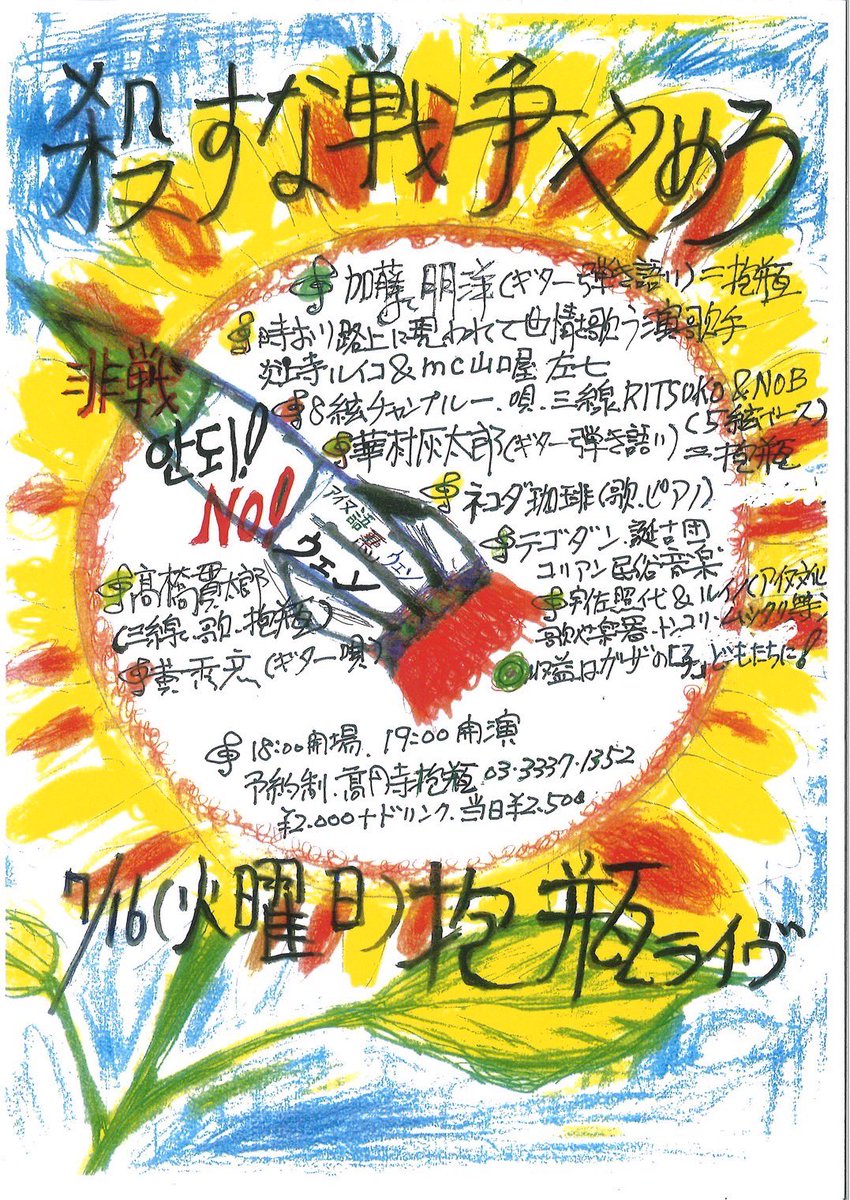 殺すな戦争やめろ
加藤明洋(ギター弾き語り)=抱瓶
時おり路上に現われて世情を歌う演歌手
炎上寺ルイコ&mc山口屋 左七
8絃チャンプルー.唄.三線RITSUKO&NOB
(5絃ベース)
華村灰太郎(ギター弾き語り)
=抱瓶
ネコダ珈琲(歌.ピアノ)
テゴダン.誕吉団
コリアン民俗音楽
宇佐照代&ルイノ(アイヌ文化
歌や楽器.トンコリ.ムックリ等)
収益はガザの「子」どもたちに!
非戦
안되!
NO!
アイヌ語
悪
ウェン
ウェン
高橋貫太郎
(三線.歌.抱瓶)
(ギター唄)
18:00開場.19:00開演
予約制.高円寺抱瓶 03・3337・1352
¥2.000+ドリンク.当日¥2.500
7/16(火曜日)抱瓶ライヴ